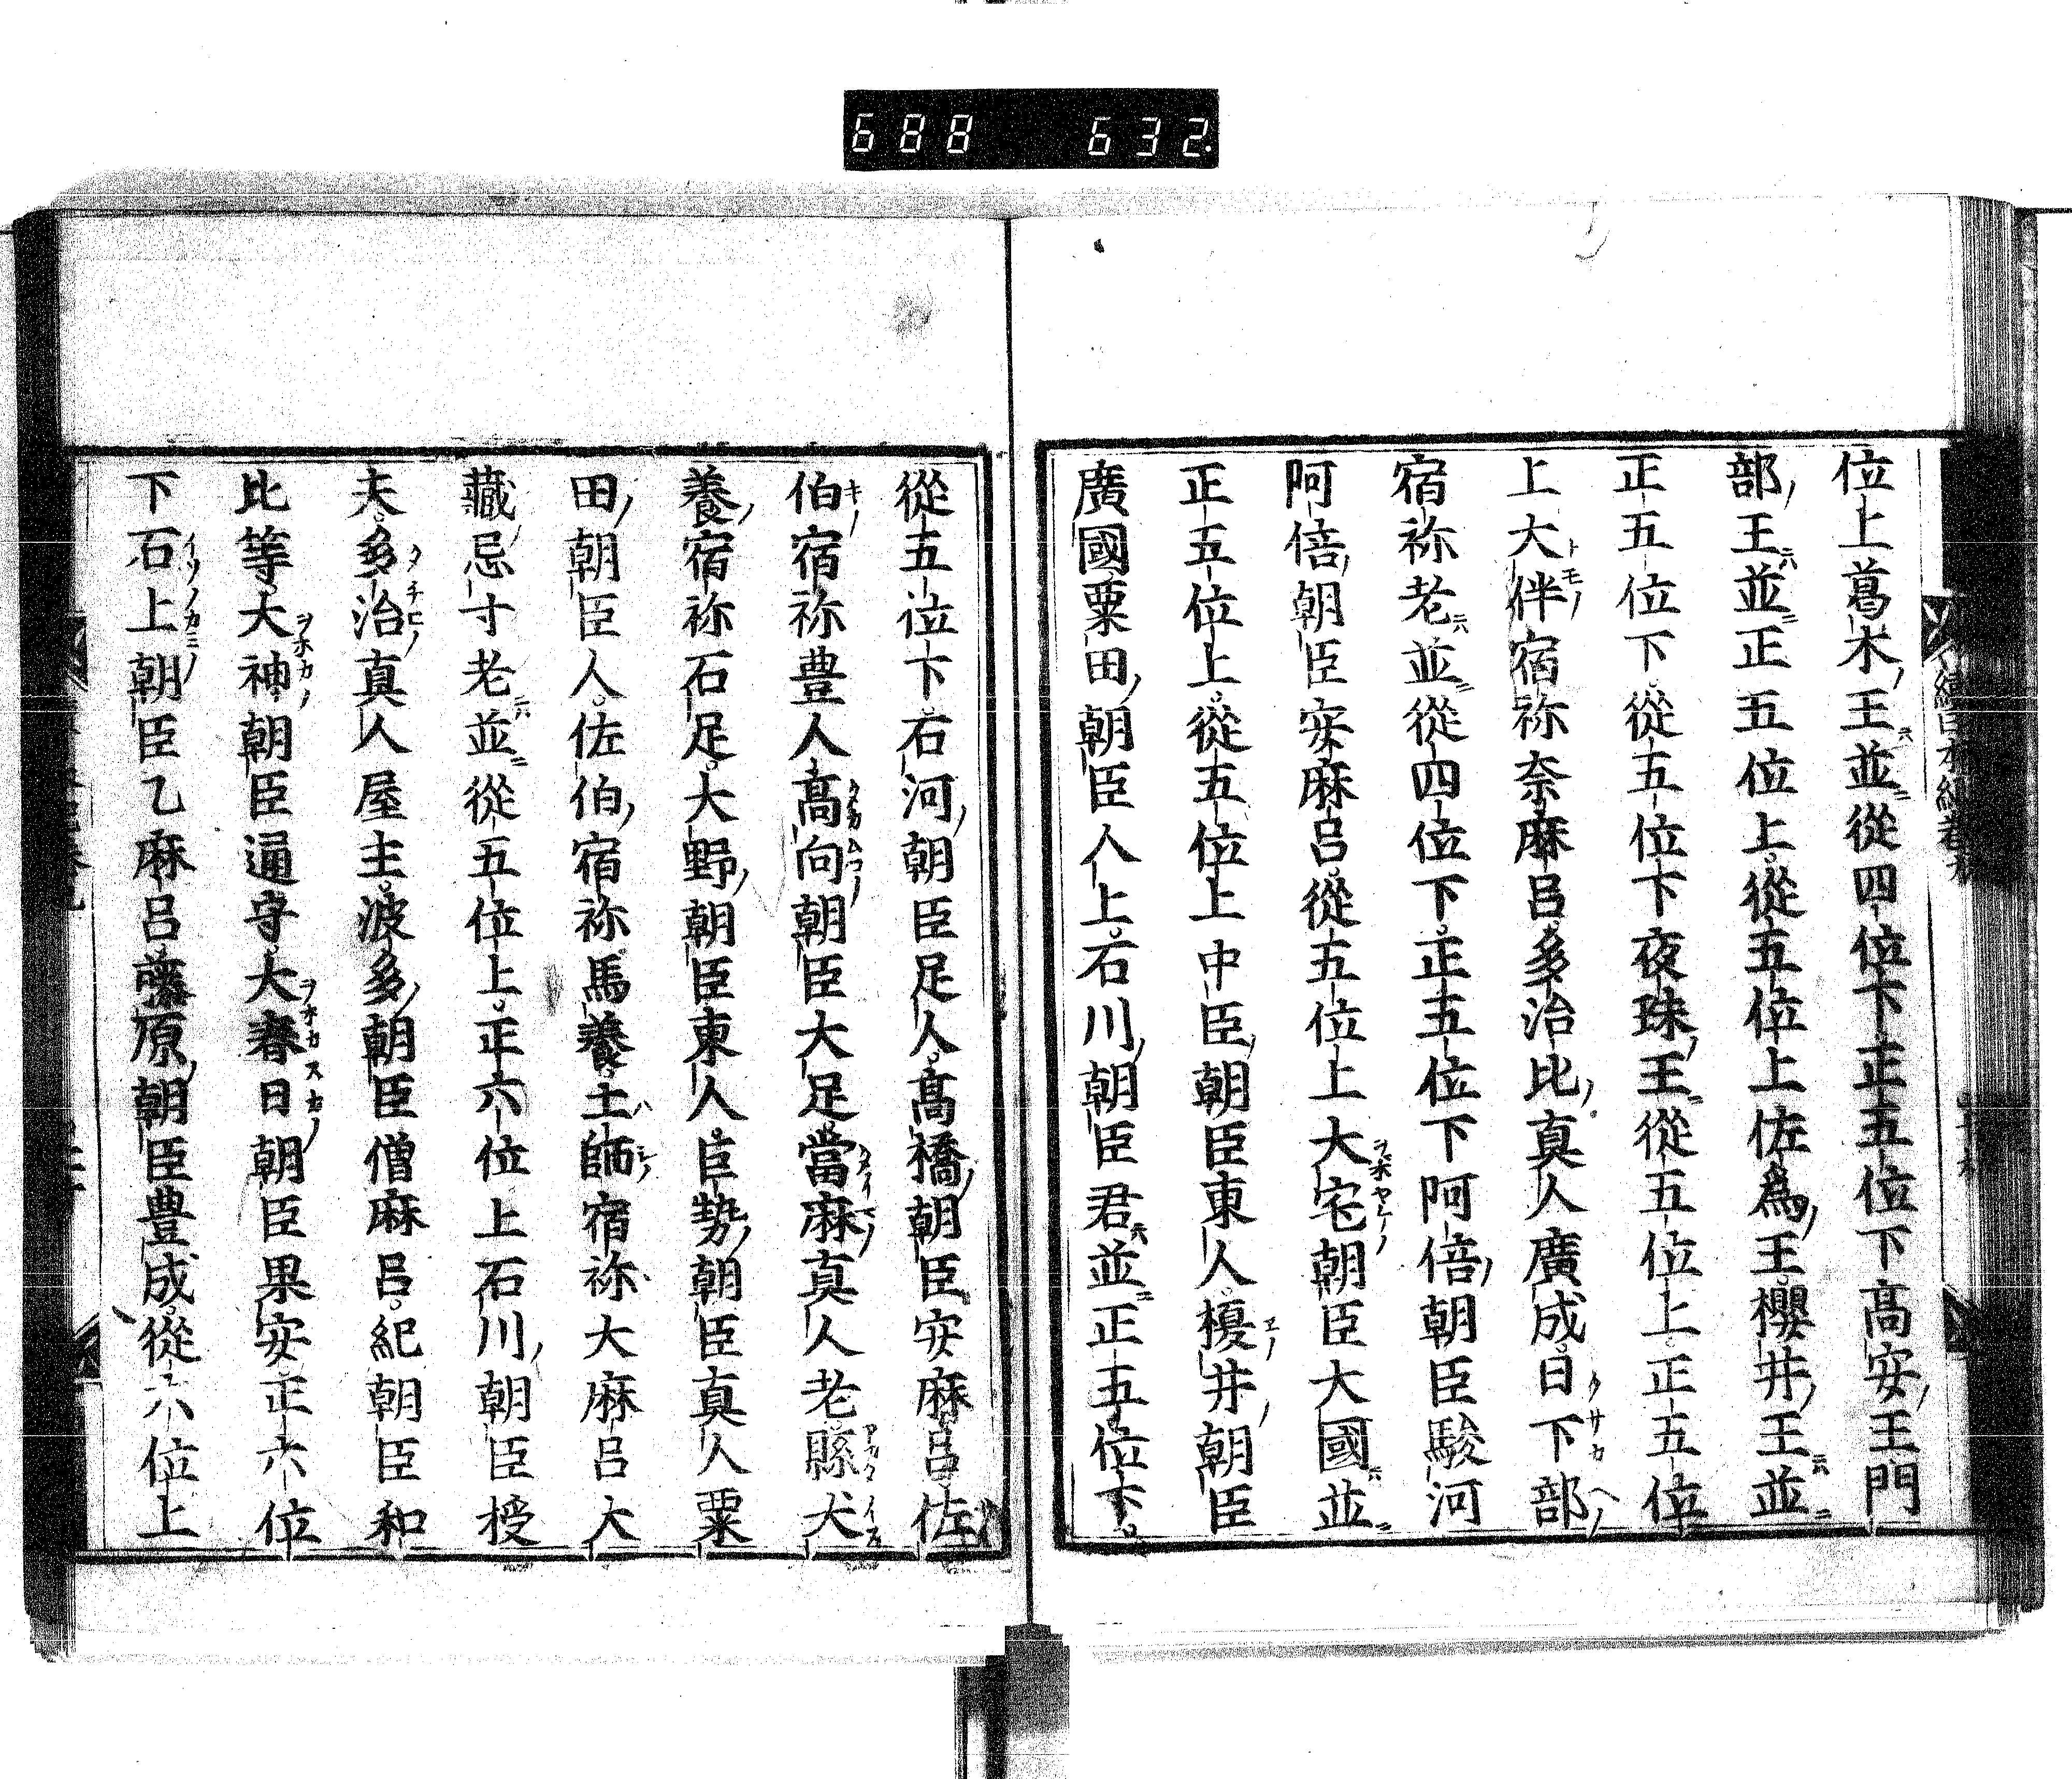 688 632
位上葛木王並從四位下正五位下高安王門
部王並正五位上從五位上佐爲王櫻井王並
正五位下從五位下夜珠王從五位上正五位
上大伴宿祢奈麻呂多治比真人廣成日下部
宿祢老並從四位下正五位下阿倍朝臣駿河
阿倍朝臣安麻呂從五位上大宅朝臣大國並
正五位上從五位上中臣朝臣東人榎井朝臣
廣國粟田朝臣人上石川朝臣君並正五位下
從五位下石河朝臣足人高橋朝臣安麻呂佐
伯宿祢豊人高向朝臣大足當麻真人老縣犬
養宿祢石足大野朝臣東人臣勢朝臣真人粟
田朝臣人佐伯宿祢馬養土師宿祢大麻呂大
藏忌寸老並從五位上正六位上石川朝臣授
夫多治真人屋主波多朝臣僧麻呂紀朝臣和
比等大神朝臣通守大春日朝臣果安正六位
下石上朝臣乙麻呂藤原朝臣豊成從六位上